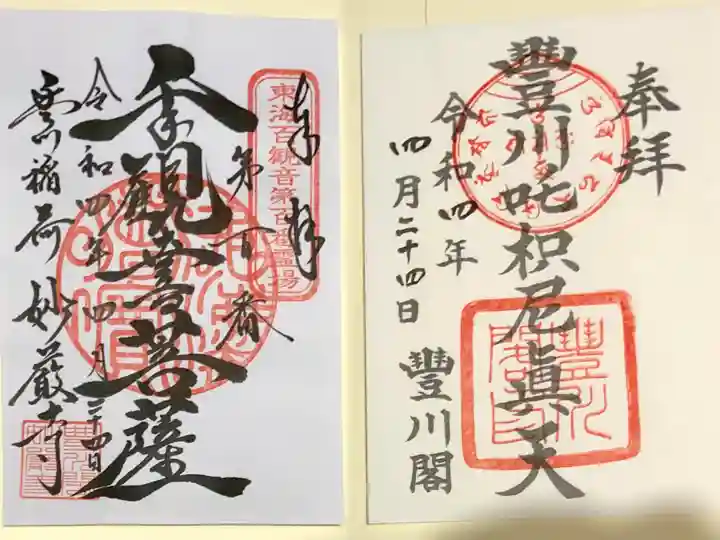 奉拝
東海百観音第百番霊場
第百番
千手觀音菩薩
令和四年四月二十四日
豊川稲荷 妙嚴寺
奉拝
豐川吒枳尼眞天
令和四年
四月二十四日
豐川閣
豐川閣印